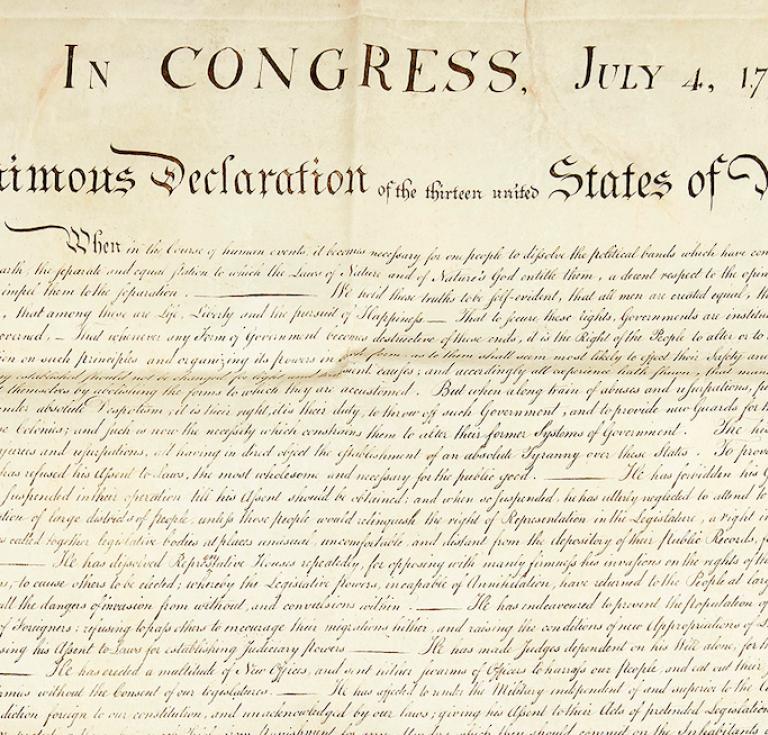 In CONGRESS, July 4, 17
nimous Declaration of the thirteen united States of
When in the Course of human events, it becomes necessary for one people to dissolve the political bands which have con
earth, the separate and equal station to which the Laws of Nature and of Nature's God entitle them, a decent respect to the opin
impel them to the separation. ——— We hold these truths to be self-evident, that all men are created equal, th
, that among these are Life, Liberty and the pursuit of Happiness — That to secure these rights, Governments are institu
overned, — That whenever any Form of Government becomes destructive of these ends, it is the Right of the People to alter or to
ion on such principles and organizing its powers in such form, as to them shall seem most likely to effect their Safety and
established should not be changed for light and transient causes; and accordingly all experience hath shewn, that man
themselves by abolishing the forms to which they are accustomed. But when a long train of abuses and usurpations, pu
under absolute Despotism, it is their right, it is their duty, to throw off such Government, and to provide new Guards for th
se Colonies; and such is now the necessity which constrains them to alter their former Systems of Government. The his
injuries and usurpations, all having in direct object the establishment of an absolute Tyranny over these States. To prove
has refused his Assent to Laws, the most wholesome and necessary for the public good. ——— He has forbidden his G
suspended in their operation till his Assent should be obtained; and when so suspended, he has utterly neglected to attend to
tion of large districts of people, unless those people would relinquish the right of Representation in the Legislature, a right in
s called together legislative bodies at places unusual, uncomfortable, and distant from the depository of their Public Records, fo
——— He has dissolved Representative Houses repeatedly, for opposing with manly firmness his invasions on the rights of the
ns, to cause others to be elected; whereby the Legislative powers, incapable of Annihilation, have returned to the People at larg
all the dangers of invasion from without, and convulsions within. ——— He has endeavoured to prevent the population of
of Foreigners; refusing to pass others to encourage their migrations hither, and raising the conditions of new Appropriations of L
sing his Assent to Laws for establishing Judiciary powers. ——— He has made Judges dependent on his Will alone, for th
——— He has erected a multitude of New Offices, and sent hither swarms of Officers to harrass our People, and eat out their
Armies without the Consent of our legislatures. ——— He has affected to render the Military independent of and superior to the Ci
diction foreign to our constitution, and unacknowledged by our laws; giving his Assent to their Acts of pretended Legislation
from punishment for any Murders which they should commit on the Inhabitants